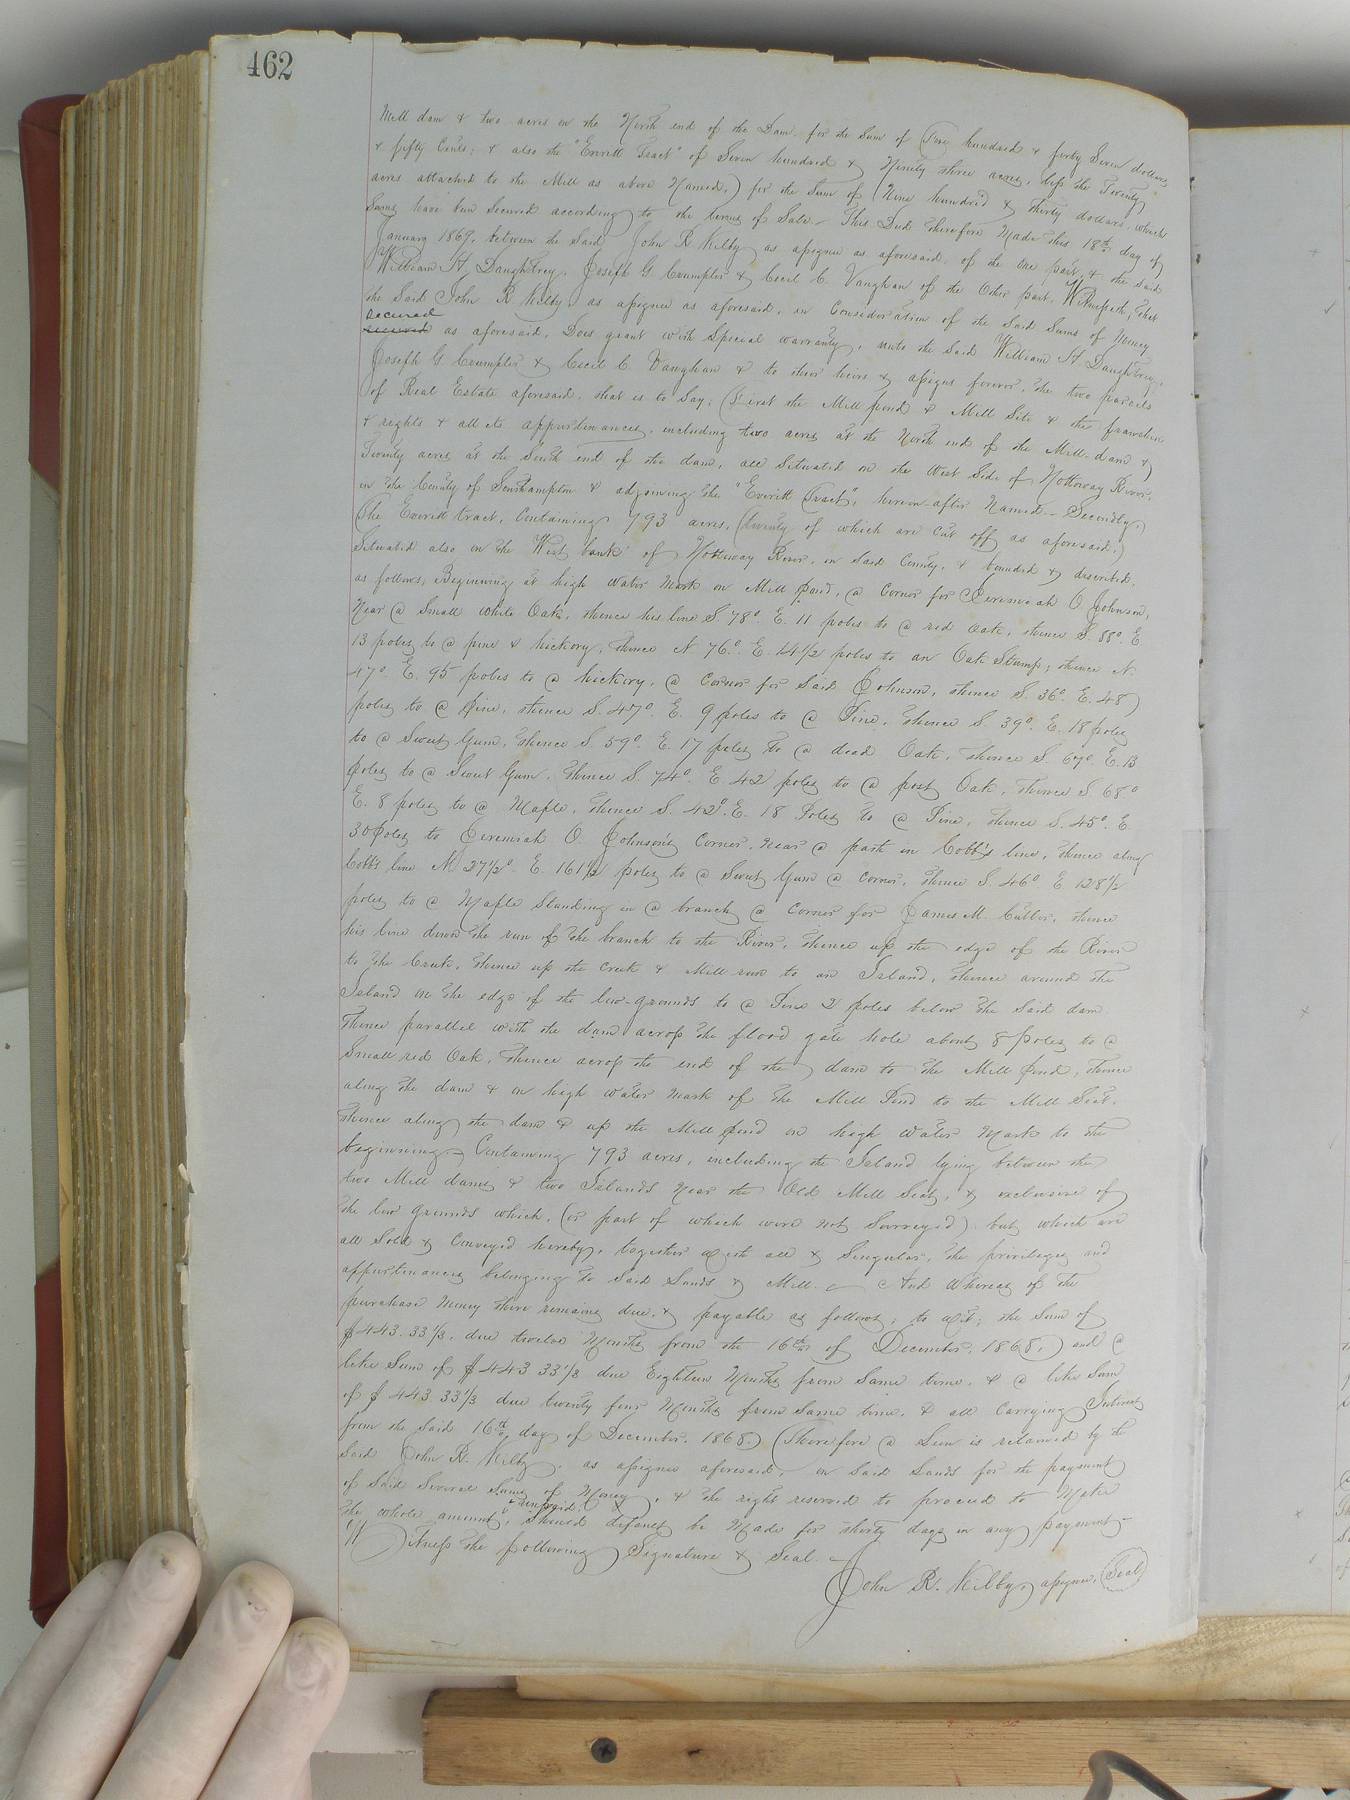 462
Mill dam & two acres on the North end of the Dam for the Sum of Five hundred & forty Seven dollars
& fifty Cents; & also the "Everitt Tract" of Seven hundred & Ninety three acres, less the Twenty
acres attached to the Mill as above Named,) for the Sum of Nine hundred & thirty dollars, which
Sums have been Secured according to the terms of Sale - This Deed therefore Made this 18th day of
January 1869, between the Said John R Kilby as assignee as aforesaid, of the one part, & the said
William H. Daughtrey, Joseph G. Crumpler & Cecil C. Vaughan of the Other part, Witnesseth, that
the Said John R Kilby as assignee as aforesaid, in Consideration of the Said Sums of Money
secured
received as aforesaid, Does grant with Special warranty, unto the Said William H Daughtrey,
Joseph G Crumpler & Cecil C. Vaughan & to their heirs & assigns forever, the two parcels
of Real Estate aforesaid, that is to Say; First the Mill pond & Mill Site & the franchise
& rights & all its appurtenances, including two acres at the North end of the Mill-dam &
Twenty acres at the South end of the dam, all Situated on the West Side of Nottoway River,
in the County of Southampton & adjoining the "Everitt Tract", herein after Named - Secondly,
The Everitt tract, Containing 793 acres, (twenty of which are cut off as aforesaid,)
Situated also on the West bank of Nottoway River, in Said County, & bounded & described,
as follows, Beginning at high water Mark on Mill Pond, @ Corner for Jeremiah O. Johnson,
Near @ Small white Oak, thence his line S. 78°. E. 11 poles to @ red Oak, thence S. 88°. E
13 poles to @ pine & hickory, thence N 76.° E. 14 1/2 poles to an Oak Stump; thence N.
47°. E. 95 poles to @ hickory, @ Corner for Said Johnson, thence S. 36°. E. 48
poles to @ Pine, thence S. 47°. E. 9 poles to @ Pine, thence S. 39°. E. 18 poles
to @ Sweet Gum, thence S. 59°. E. 17 poles to @ dead Oak, thence S. 67°. E. 13
poles to @ Sweet Gum, thence S. 74°. E. 42 poles to @ post Oak, thence S 68°
E. 8 poles to @ Maple, thence S. 42°. E. 18 Poles to @ Pine, thence S. 45°. E.
30 Poles to Jeremiah O. Johnson's Corner, near @ path in Cobb's line, thence along
Cobb's line N 27 1/2°. E. 161 1/2 poles to @ Sweet Gum @ corner, thence S. 46°. E. 128 1/2
poles to @ Maple Standing in @ branch @ Corner for James M. Cutler, thence
his line down the run of the branch to the River, thence up the edge of the River
to the Creek, thence up the Creek & Mill run to an Island, thence around the
Island on the edge of the low-grounds to @ Pine 2 poles below the Said dam.
Thence parallel with the dam across the flood gate hole about 8 Poles to @
Small red Oak, thence across the end of the dam to the Mill Pond, thence
along the dam & on high water Mark of the Mill Pond to the Mill Seat,
thence along the dam & up the Mill Pond on high water Mark to the
beginning - Containing 793 acres, including the Island lying between the
two Mill dams & two Islands near the Old Mill Seat, & exclusive of
the low grounds which, (or part of which were not Surveyed) but which are
all Sold & Conveyed hereby, together with all & Singular, the privileges and
appurtenances belonging to Said Lands & Mill. - And Whereas of the
purchase Money there remains due & payable as follows; to wit; the Sum of
$443.33 1/3, due twelve Months from the 16th of December, 1868, and @
like Sum of $443 33 1/3 due Eighteen Months from Same time, & @ like Sum
of $443 33 1/3 due twenty four Months from Same time, & all Carrying Interest
from the Said 16th day of December, 1868. Therefore @ Lien is retained by the
Said John R. Kilby, as assignee aforesaid, on Said Lands for the payment
of Said Several Sums of Money, & the right reserved to proceed to Make
the whole amount unpaid, Should default be Made for thirty days in any payment -
Witness the following Signature & Seal -
John R. Kilby, assignee, Seal